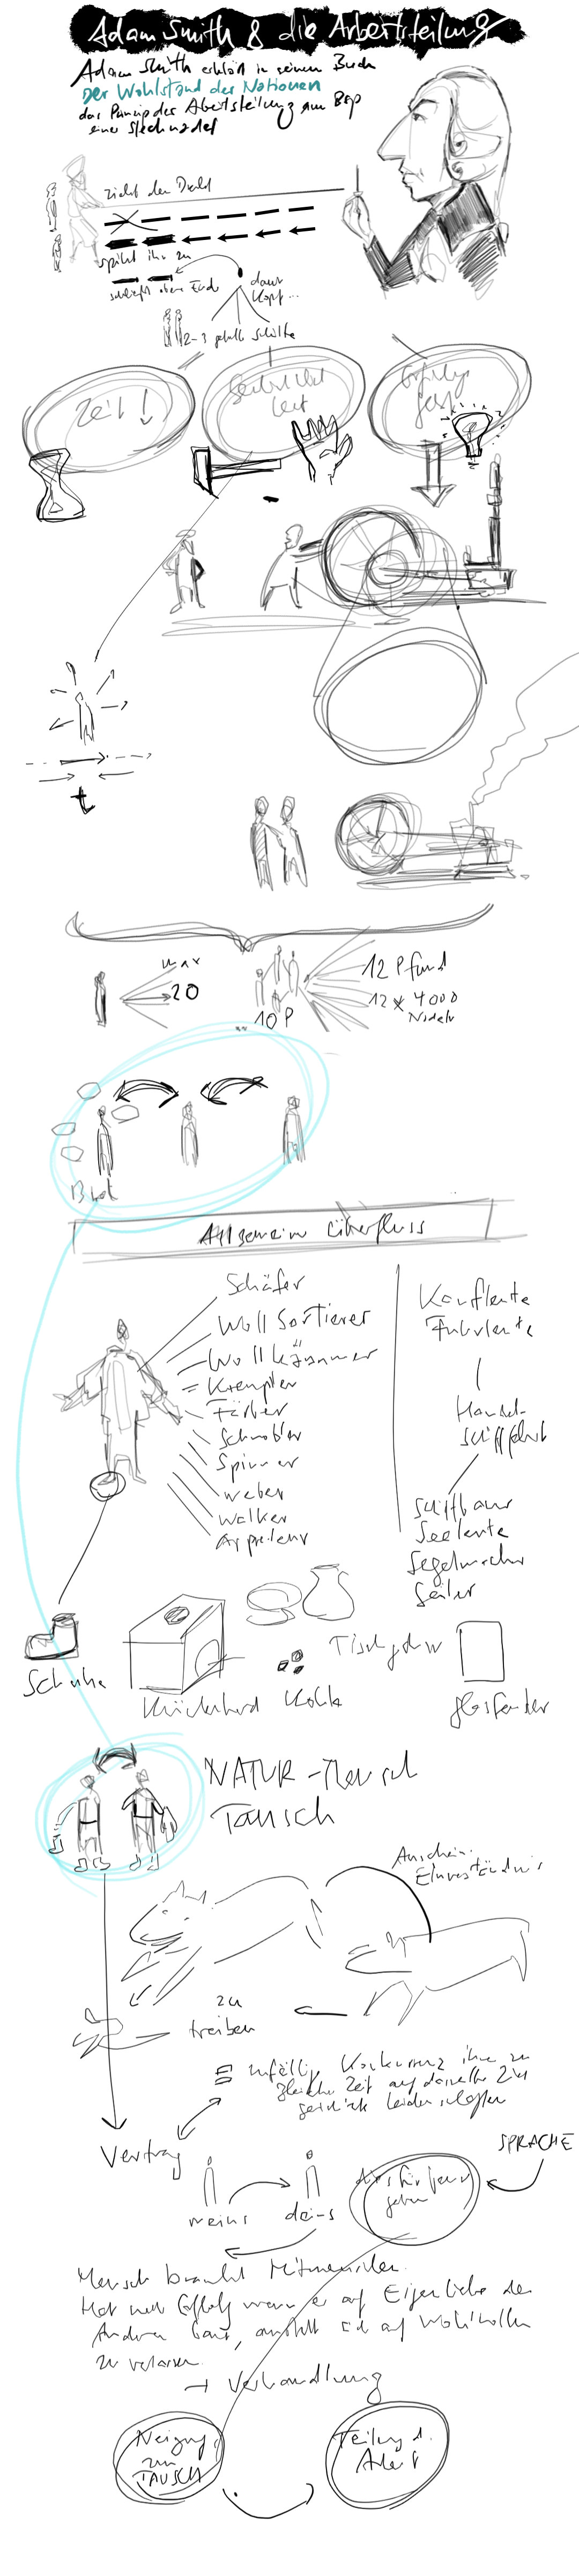 Adam Smith & die Arbeitsteilung
Adam Smith erklärt in seinem Buch
Der Wohlstand der Nationen
das Prinzip der Arbeitsteilung am Bsp
einer Stecknadel
zieht den Draht
spitzt ihn zu
schleift obere Ende
dann
Kopf...
2-3 gesonderte Schritte
Zeit!
max
20
10 P
12 Pfund
12 x 4000
Nadeln
t
Brot
Allgemeiner Überfluss
Schäfer
Woll Sortierer
Wollkämmer
Krempler
Färber
Schrobler
Spinner
Weber
Walker
Kaufleute
Fuhrleute
Handels-
schifffahrt
Schiffbauer
Seeleute
Segelmacher
Seiler
Schuhe
Küchenherd
Kohle
Glasfenster
NATUR - Mensch
Tausch
Anschein.
Einverständnis
zu
treiben
zufällig. Konkurrenz ihrer zu
gleicher Zeit auf dasselbe Ziel
Vertrag
meins
deins
SPRACHE
Mensch braucht Mitmenschen.
Hat mehr Erfolg wenn er auf Eigenliebe der
Anderen baut, anstatt sich auf Wohlwollen
zu verlassen.
→ Verhandlung
Neigung
zum
TAUSCH
Teilung d.
Arbeit